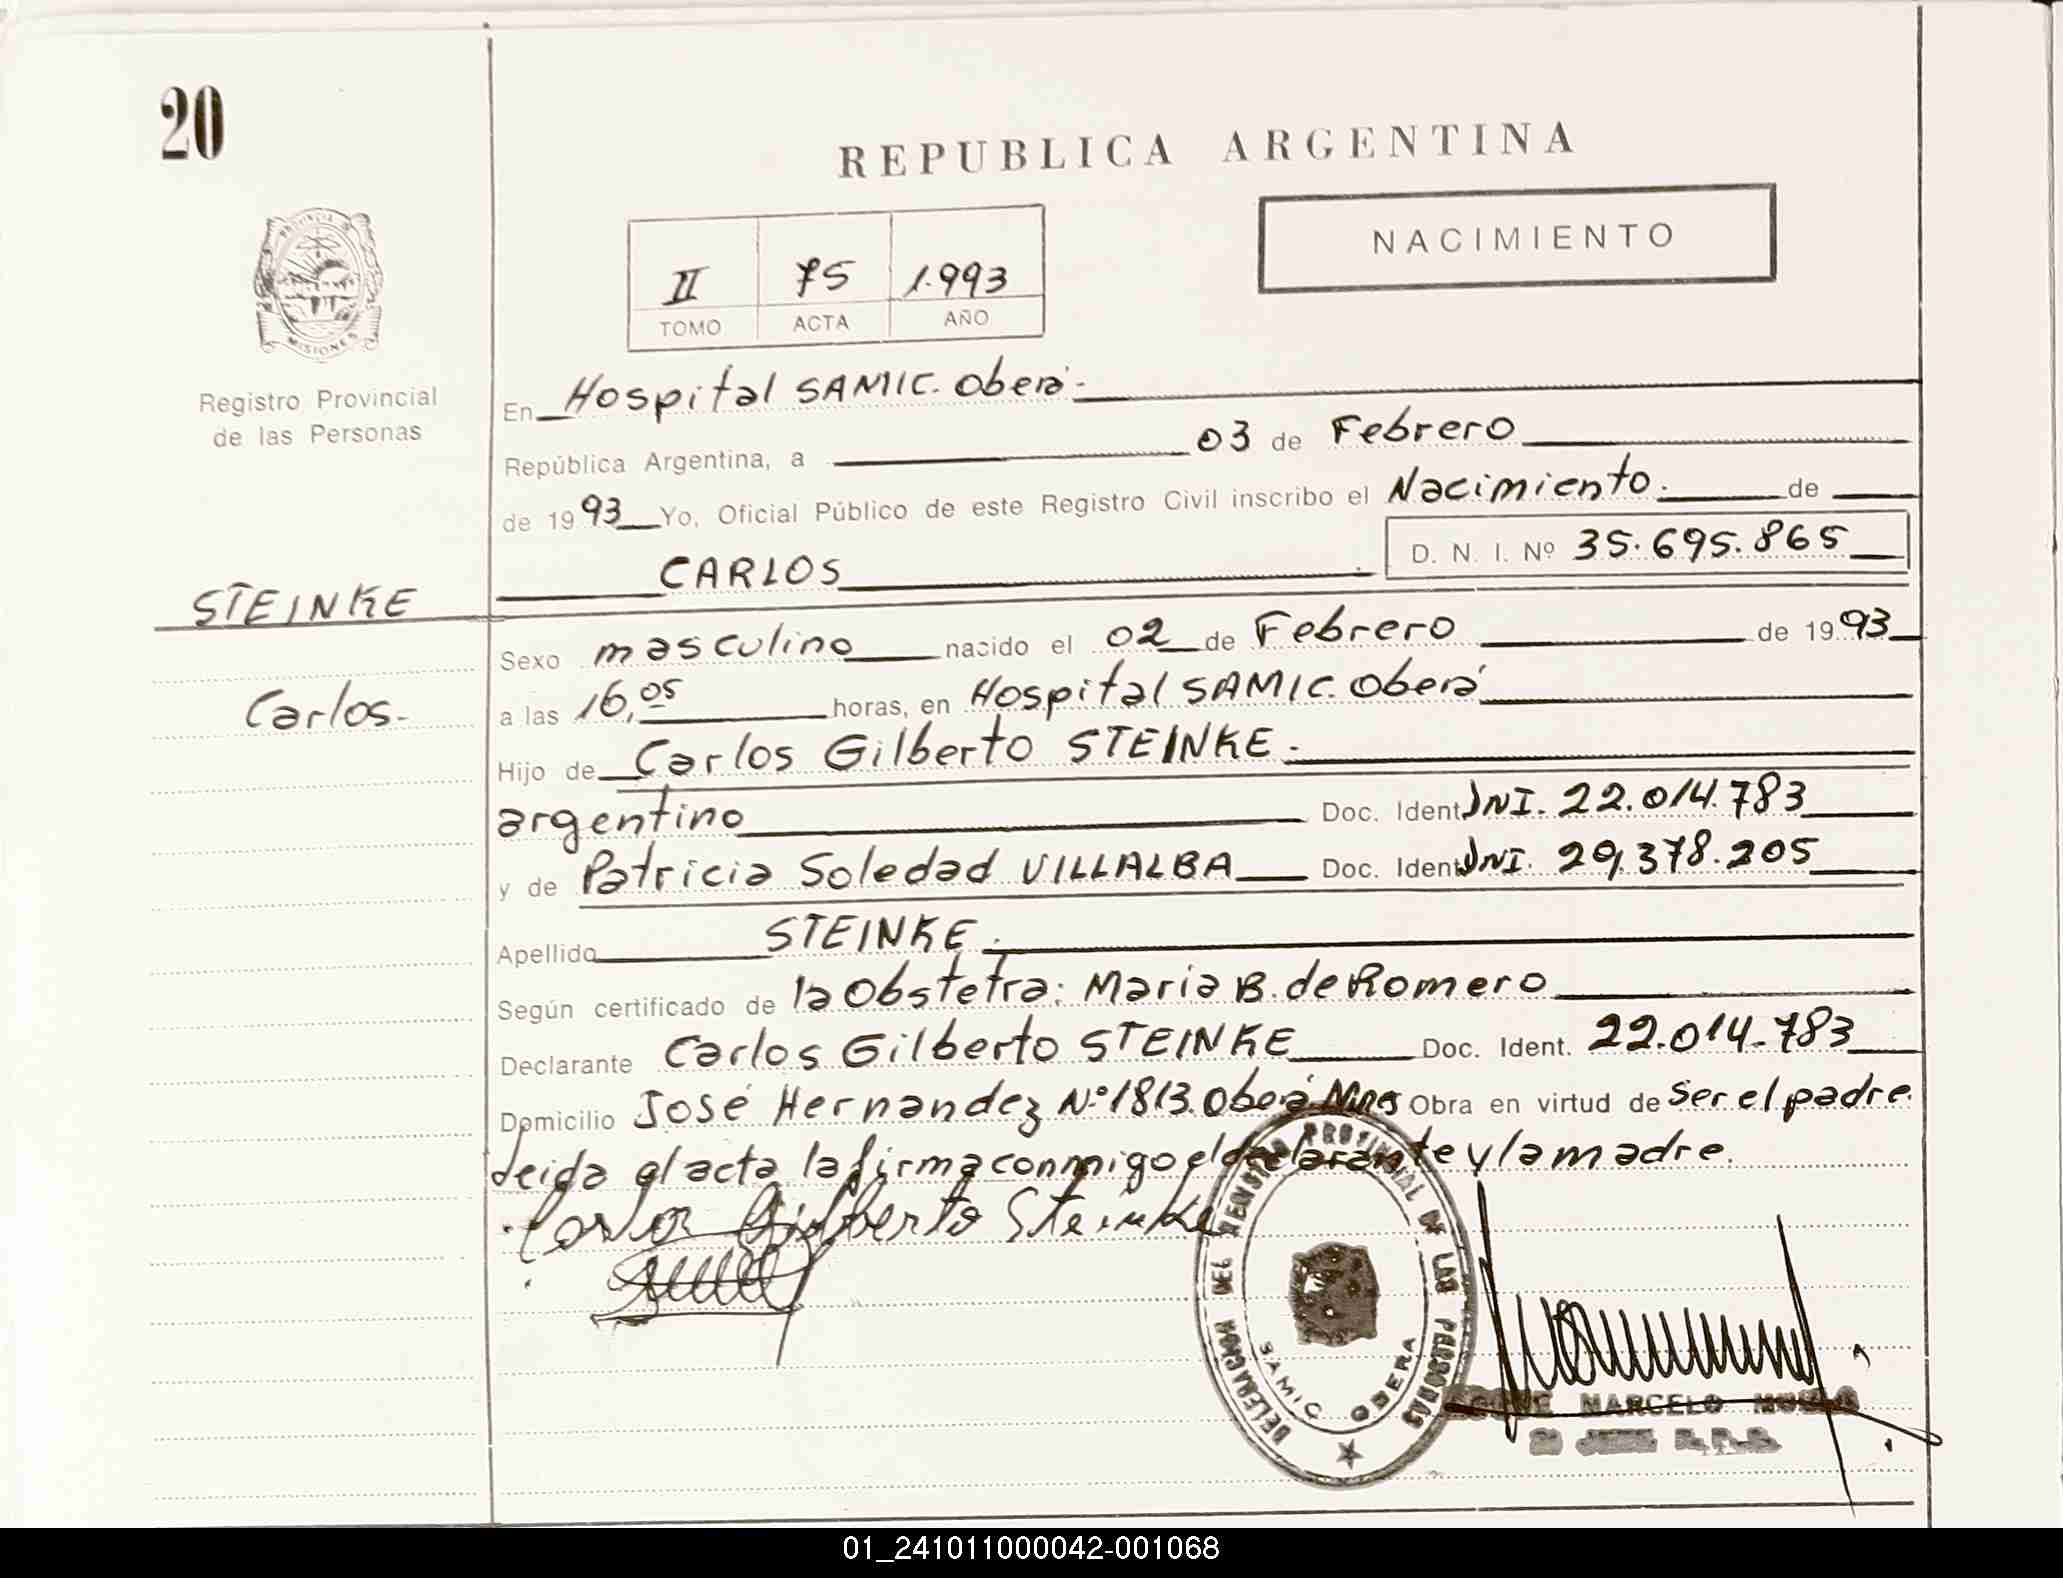 20
REPUBLICA ARGENTINA
NACIMIENTO
II 75 1.993
TOMO ACTA AÑO
PROVINCIA DE
MISIONES
Registro Provincial
de las Personas
En Hospital SAMIC. Oberá.-
República Argentina, a 03 de Febrero
de 1993 Yo, Oficial Público de este Registro Civil inscribo el Nacimiento. de
D. N. I. Nº 35.695.865
CARLOS
STEINKE
Carlos.-
Sexo masculino nacido el 02 de Febrero de 1993
a las 16,05 horas, en Hospital SAMIC. Oberá
Hijo de Carlos Gilberto STEINKE.-
argentino Doc. Ident. DNI. 22.014.783
y de Patricia Soledad VILLALBA Doc. Ident. DNI. 29.378.205
Apellido STEINKE.-
Según certificado de la Obstetra: Maria B. de Romero
Declarante Carlos Gilberto STEINKE Doc. Ident. 22.014.783
Domicilio José Hernandez Nº 1813. Oberá Mnes Obra en virtud de ser el padre.
Leida el acta la firma conmigo el declarante y la madre.
Carlos Gilberto Steinke
DELEGACION DEL REGISTRO PROVINCIAL DE LAS PERSONAS
SAMIC OBERA
MARCELO
01_241011000042-001068